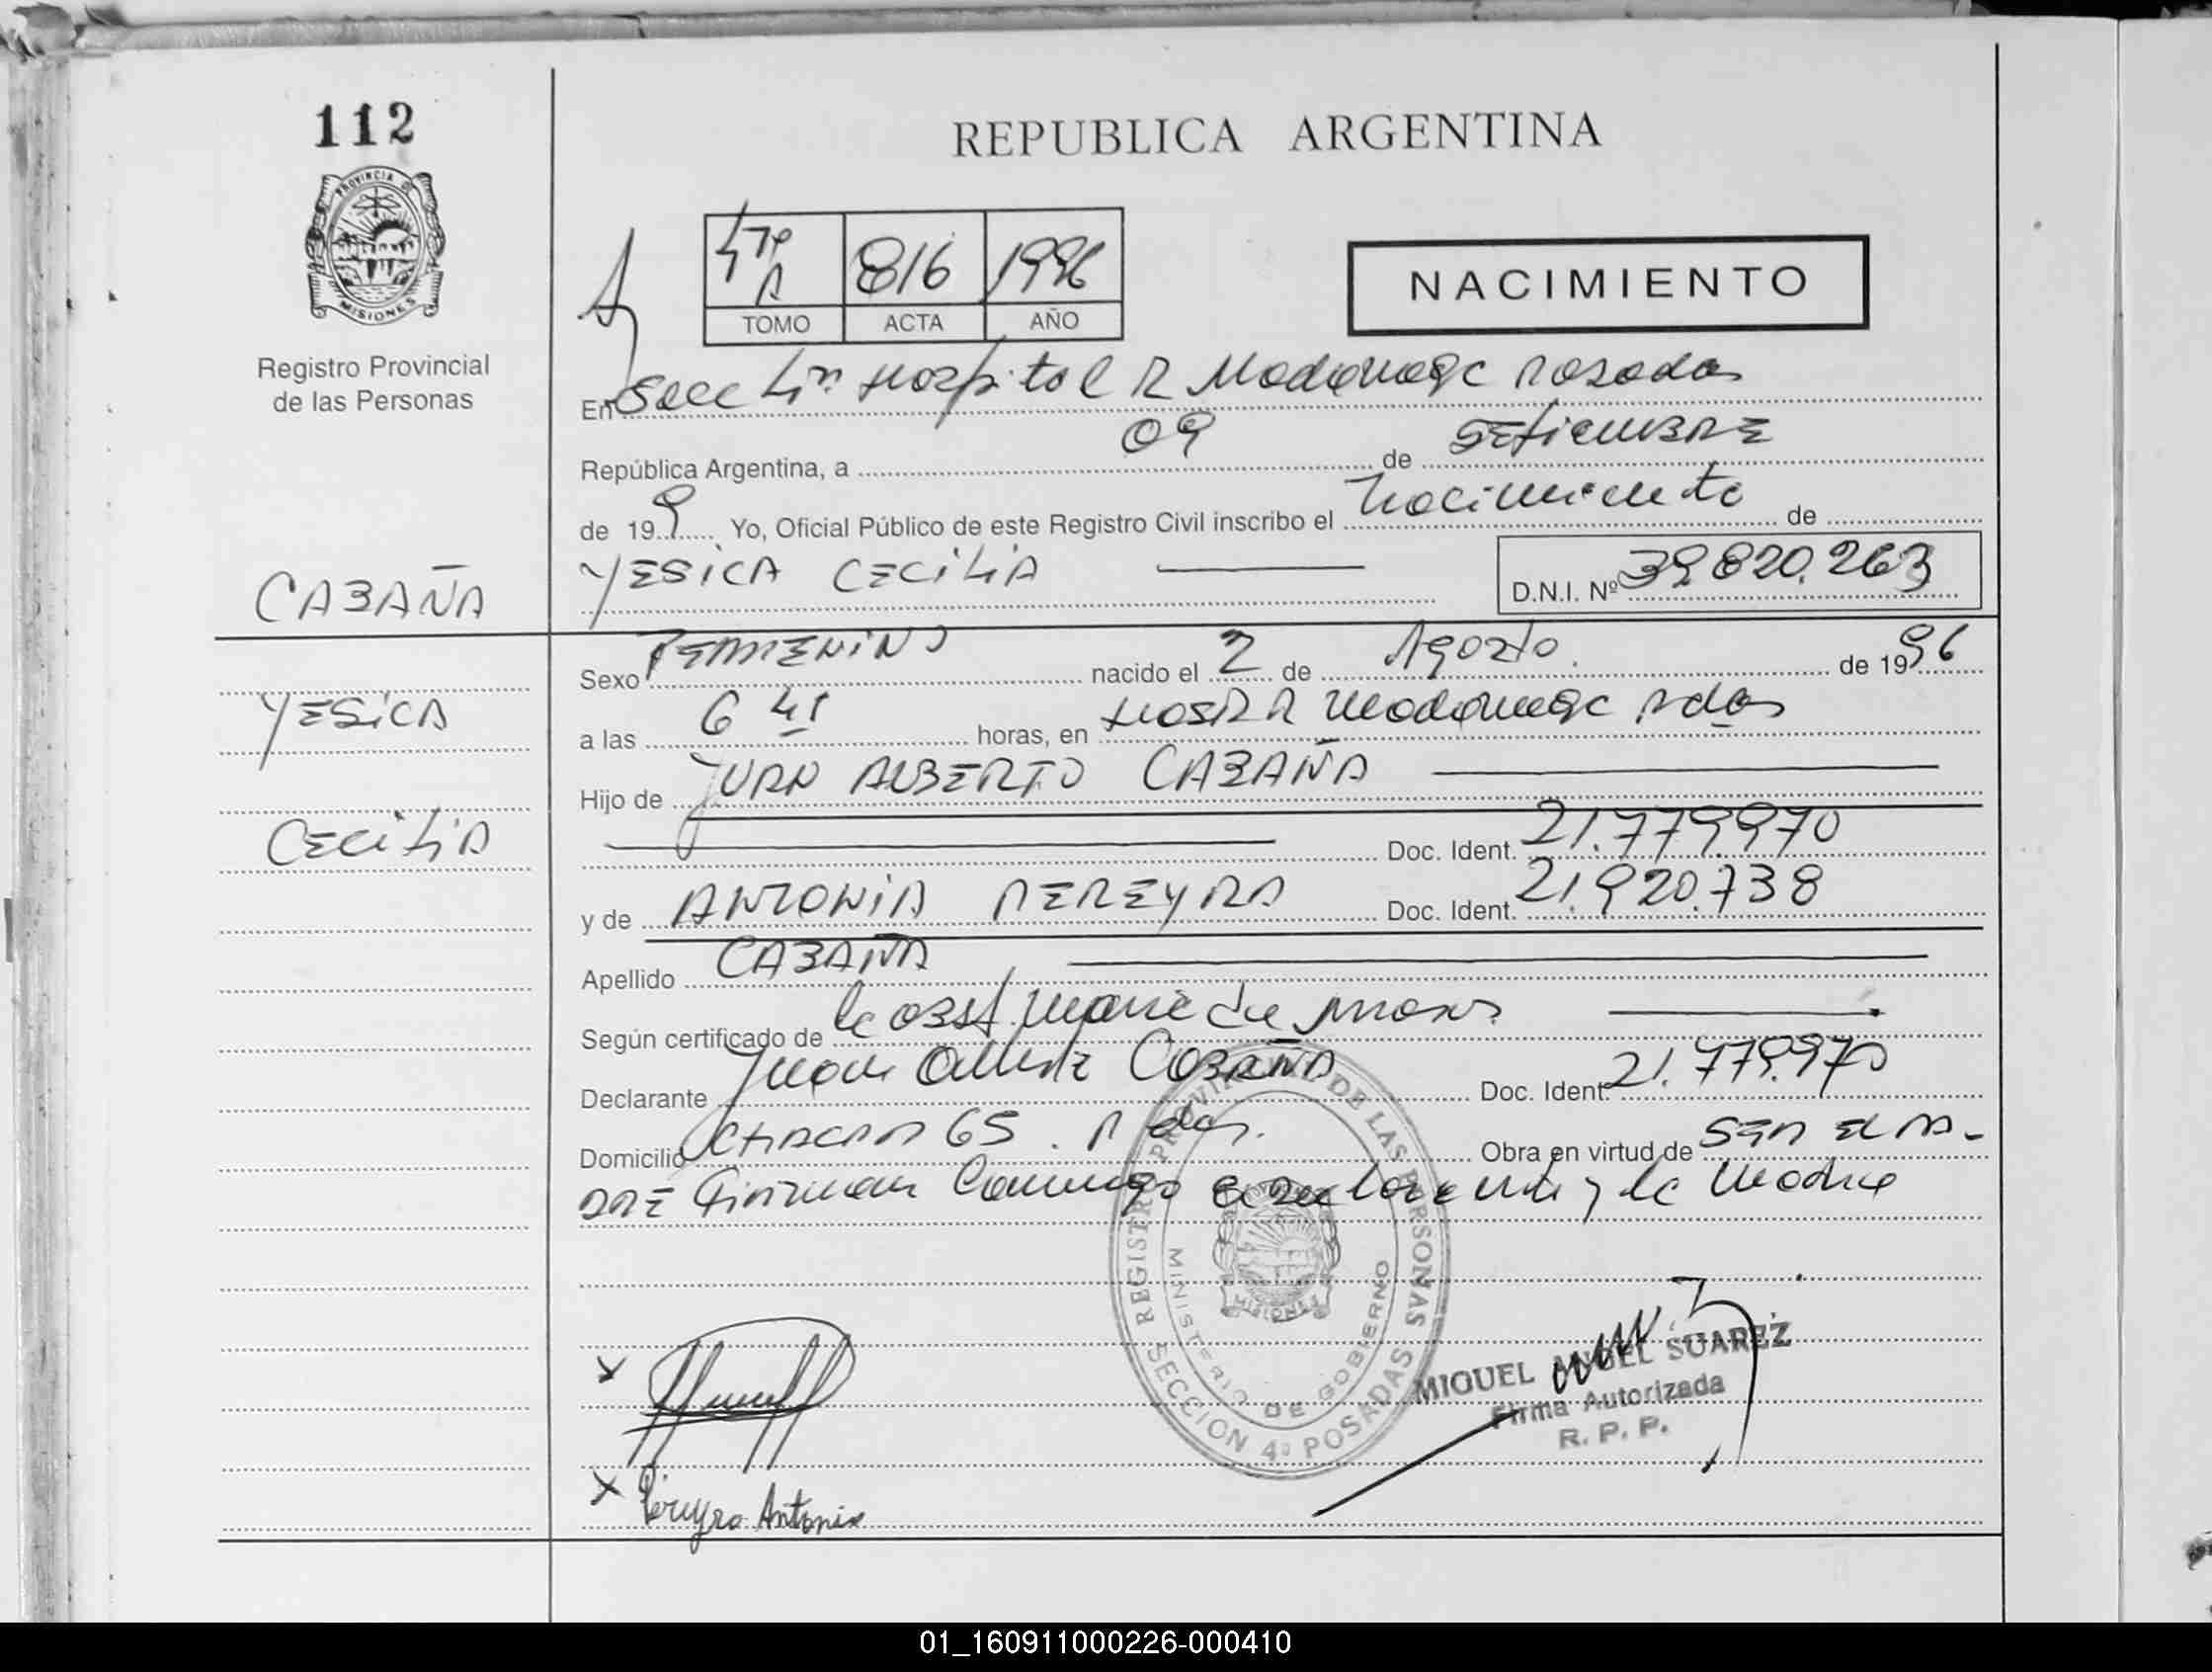 112
REPUBLICA ARGENTINA
PROVINCIA DE
MISIONES
816 1996
TOMO ACTA AÑO
NACIMIENTO
Registro Provincial
de las Personas
En Secc 4ta Hospital R Madariaga Posadas
República Argentina, a 09 de SETIEMBRE
de 199 Yo, Oficial Público de este Registro Civil inscribo el nacimiento de
CABAÑA
YESICA CECILIA
D.N.I. Nº 39.820.263
Sexo FEMENINO nacido el 2 de Agosto de 1996
YESICA
a las 6 hs horas, en Hosp R Madariaga Pdas
Hijo de JUAN ALBERTO CABAÑA
CECILIA
Doc. Ident. 21.779.970
y de ANTONIA PEREYRA Doc. Ident. 21.920.738
Apellido CABAÑA
Según certificado de la obst. de
Declarante Juan Alberto Cabaña Doc. Ident. 21.779.970
Domicilio CHACRA 65. Pdas. Obra en virtud de SER EL PA-
DRE Firman Conmigo el declarante y la Madre
REGISTRO PROVINCIAL DE LAS PERSONAS
MINISTERIO DE GOBIERNO
MISIONES
SECCION 4ª POSADAS
MIGUEL ANGEL SUAREZ
Firma Autorizada
R. P. P.
x
x Pereyra Antonia
01_160911000226-000410